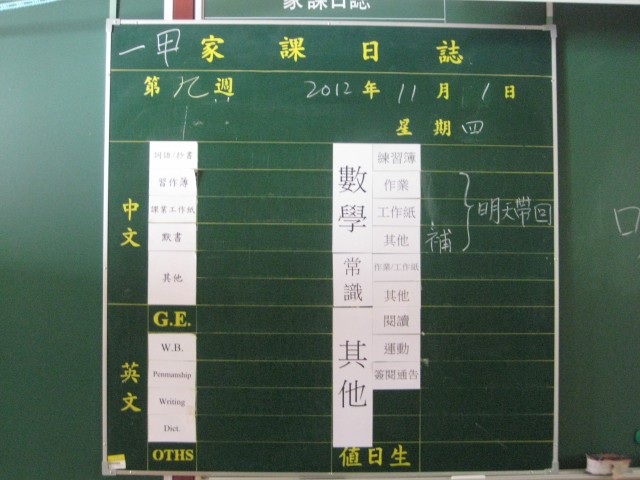 家課日誌
一甲 家課日誌
第 九 週 2012 年 11 月 1 日
星期 四
中文
詞語/抄書
習作簿
課業工作紙
默書
其他
G.E.
英文
W.B.
Penmanship
Writing
Dict.
OTHS
數學
練習簿
作業
工作紙
其他
補
明天帶回
常識
作業/工作紙
其他
其他
閱讀
運動
簽閱通告
值日生